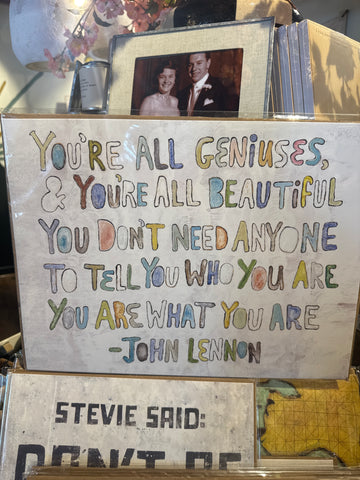 YOU'RE ALL GENIUSES,
& YOU'RE ALL BEAUTIFUL
YOU DON'T NEED ANYONE
TO TELL YOU WHO YOU ARE
YOU ARE WHAT YOU ARE
-JOHN LENNON
STEVIE SAID:
DON'T BE